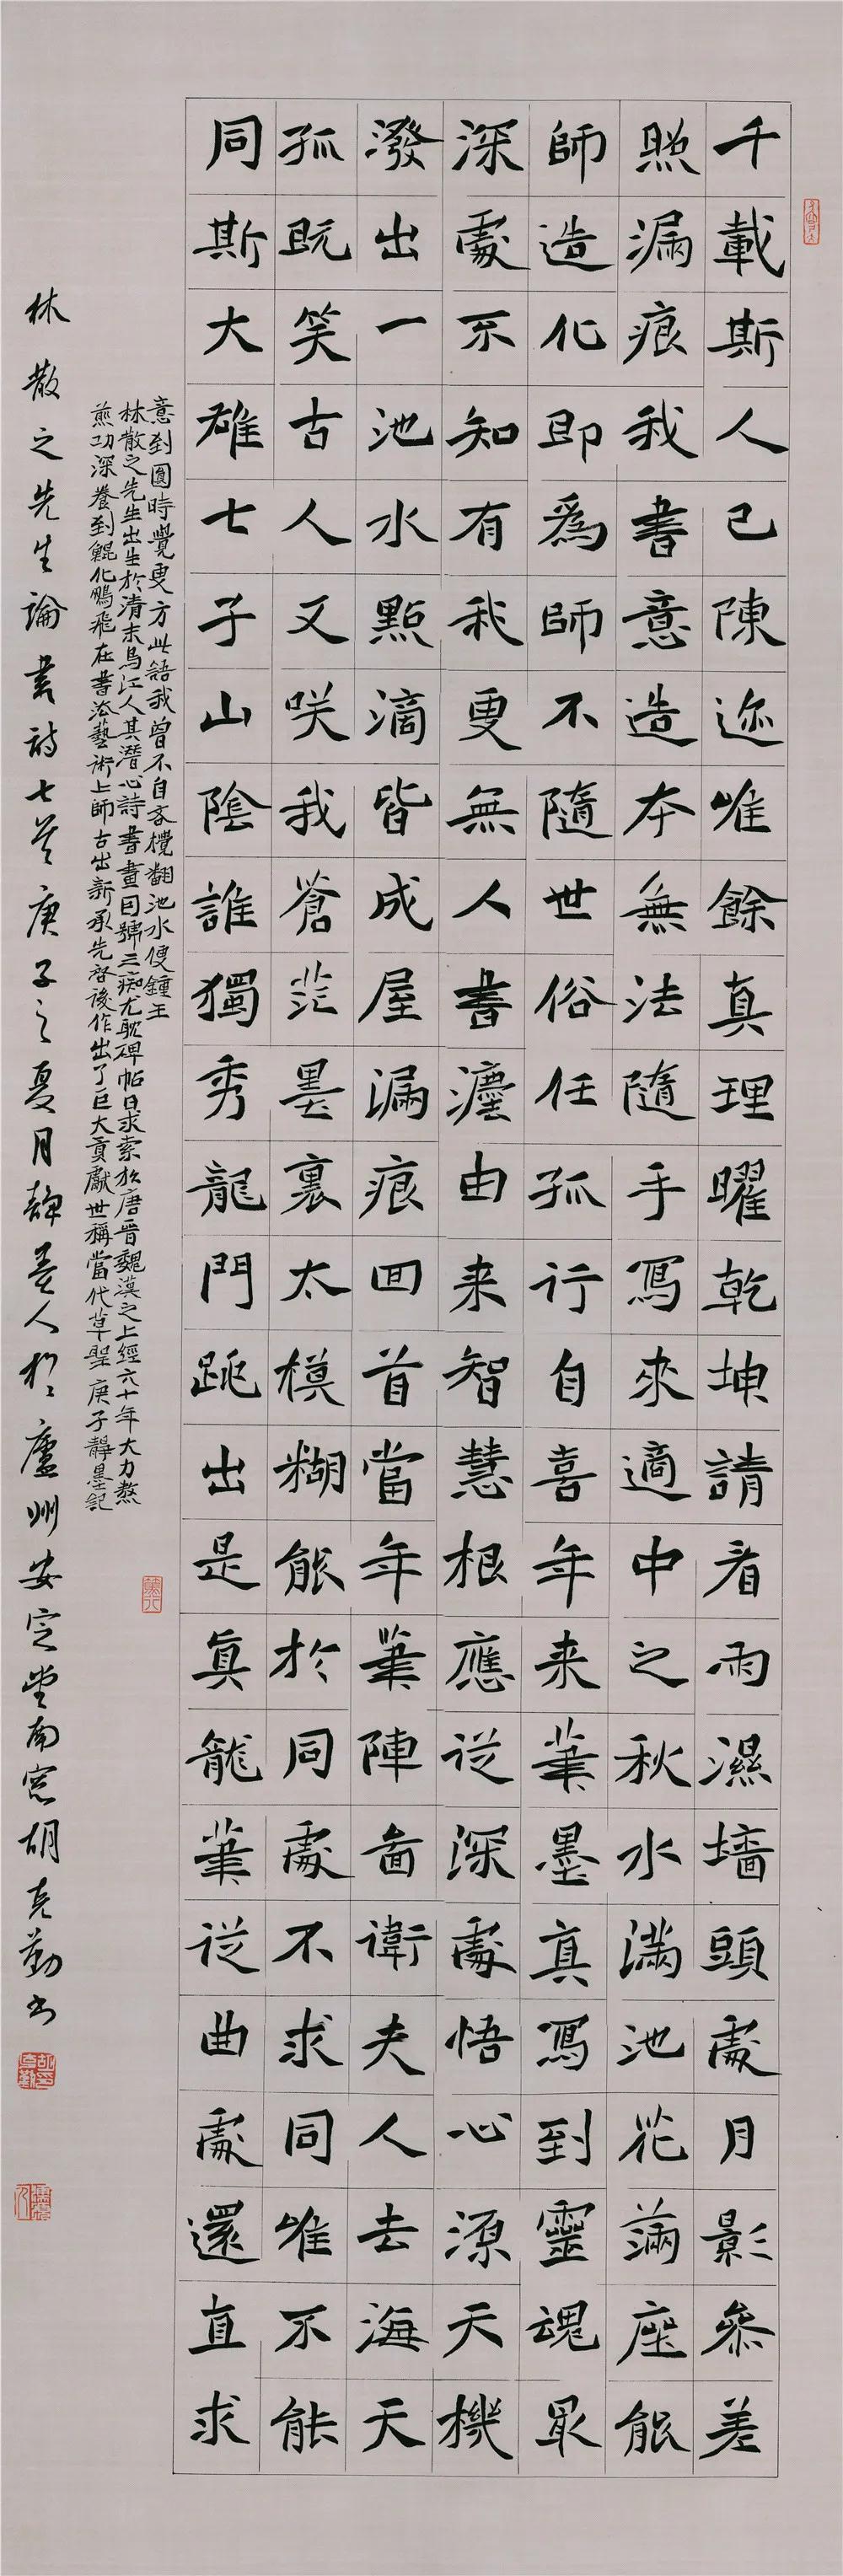 千載斯人已陳迹唯餘真理曜乾坤請看雨濕墻頭處月影參差
照漏痕我書意造本無法隨手寫來適中之秋水滿池花滿座能
師造化即爲師不隨世俗任孤行自喜年来筆墨真寫到靈魂最
深處不知有我更無人書灋由来智慧根應從深處悟心源天機
潑出一池水點滴皆成屋漏痕回首當年筆陣啚衛夫人去海天
孤既笑古人又咲我蒼茫墨裏太模糊能於同處不求同唯不能
同斯大雄七子山陰誰獨秀龍門跳出是真龍筆從曲處還直求
意到圓時覺更方此語我曾不自吝攪翻池水便鍾王
林散之先生出生於清末烏江人其潛心詩書畫因號三痴尤耽碑帖日求索於唐晉魏漢之上經六十年大力熬
煎功深養到鯤化鵬飛在書法藝術上師古出新承先啓後作出了巨大貢獻世稱當代草聖庚子靜墨記
林散之先生論書詩七首庚子之夏月靜墨人於廬州安定堂南窓胡克勤書